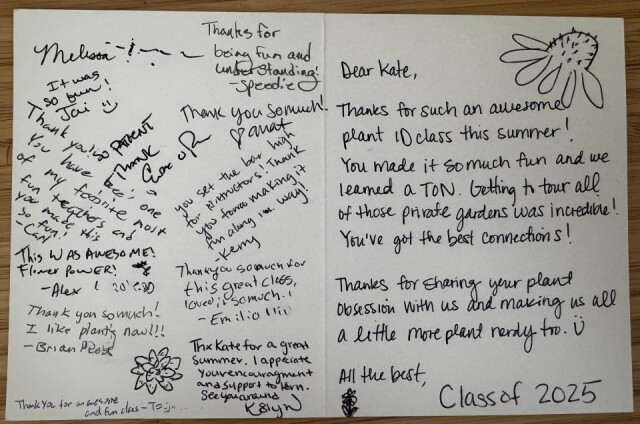 Melissa
Thanks for
being fun and
understanding!
-Speedie
It was
so fun!
Jai
Thank you so much!
Thank you!
so PATIENT
THANK
You have been one
of my favorite most
fun teachers and
you made this
so fun!
you set the bar high
for instructors! Thank
you for making it
fun along the way!
-Kerry
This WAS AWESOME!
Flower POWER!
-Alex
Thank you so much for
this great class,
loved is so much!
-Emilio
Thank you so much!
I like plants now!!!
-Brian
Thx Kate for a great
Summer. I appreciate
your encouragment
and support to learn.
See you around
Thank you for an awesome
and fun class -
Dear Kate,
Thanks for such an awesome
plant ID class this summer!
You made it so much fun and we
learned a TON. Getting to tour all
of those private gardens was incredible!
You've got the best connections!
Thanks for sharing your plant
obsession with us and making us all
a little more plant nerdy too.
All the best,
Class of 2025